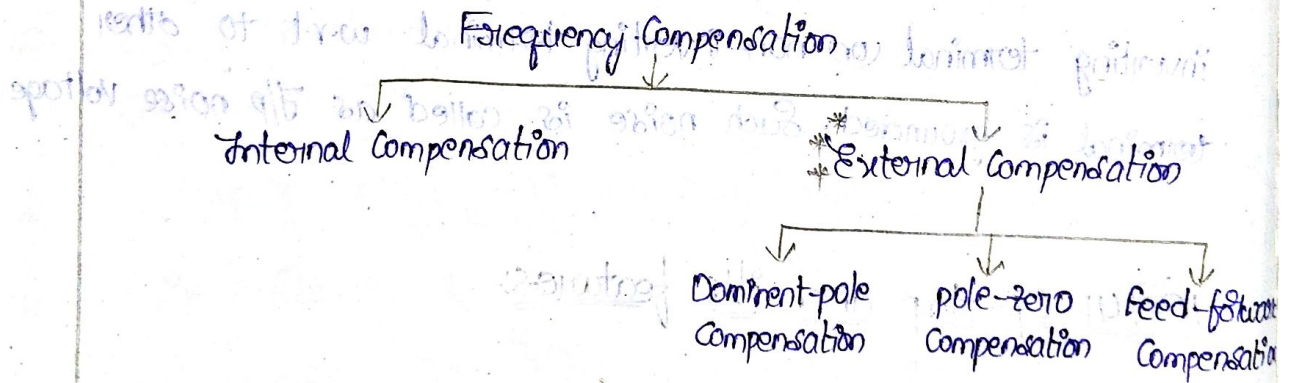 Frequency Compensation
Internal Compensation
External Compensation
Dominent-pole
Compensation
pole-zero
Compensation
Feed-
Compensatio